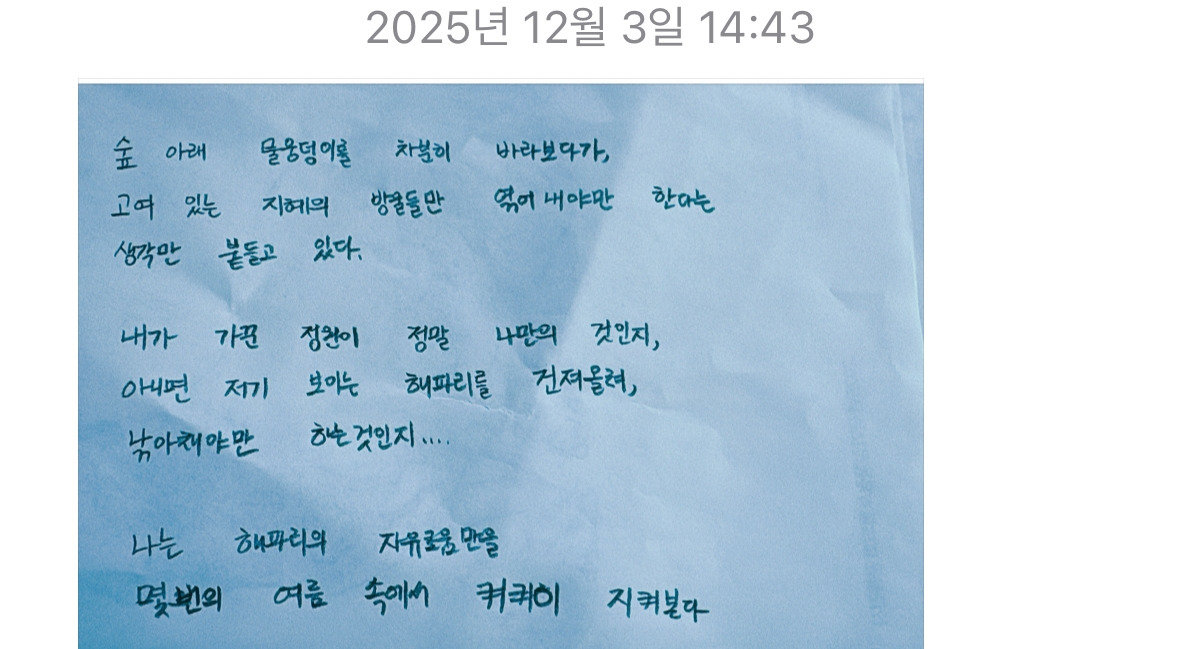 2025년 12월 3일 14:43
숲 아래 물웅덩이를 차분히 바라보다가,
고여 있는 지혜의 방울들만 엮어 내야만 한다는
생각만 붙들고 있다.
내가 가꾼 정원이 정말 나만의 것인지,
아니면 저기 보이는 해파리를 건져올려,
낚아채야만 하는것인지....
나는 해파리의 자유로움만을
몇번의 여름 속에서 켜켜이 지켜본다